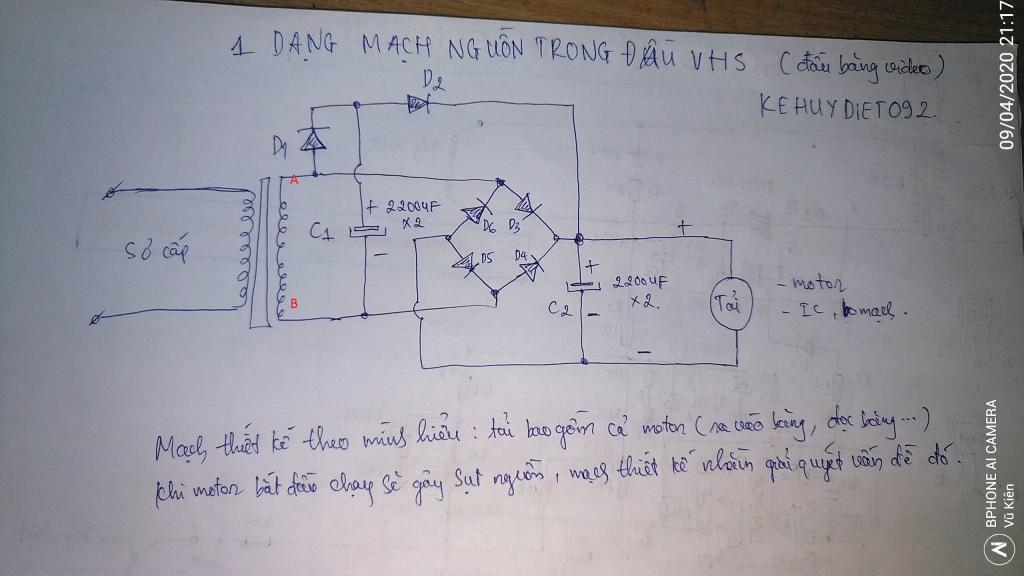 1 DẠNG MẠCH NGUỒN TRONG ĐẦU VHS (đầu băng video)
KEHUYDIET092.
D2
D1
A
+ 2200uF
×2
C1
-
D6
D3
D5
D4
Sơ cấp
B
+
+
2200uF
×2.
C2
-
-
Tải
- motor
- IC, bo mạch.
Mạch thiết kế theo mình hiểu: tải bao gồm cả motor (ra vào băng, đọc băng...)
Khi motor bắt đầu chạy sẽ gây sụt nguồn, mạch thiết kế nhằm giải quyết vấn đề đó.
09/04/2020 21:17
BPHONE AI CAMERA
Vũ Kiên